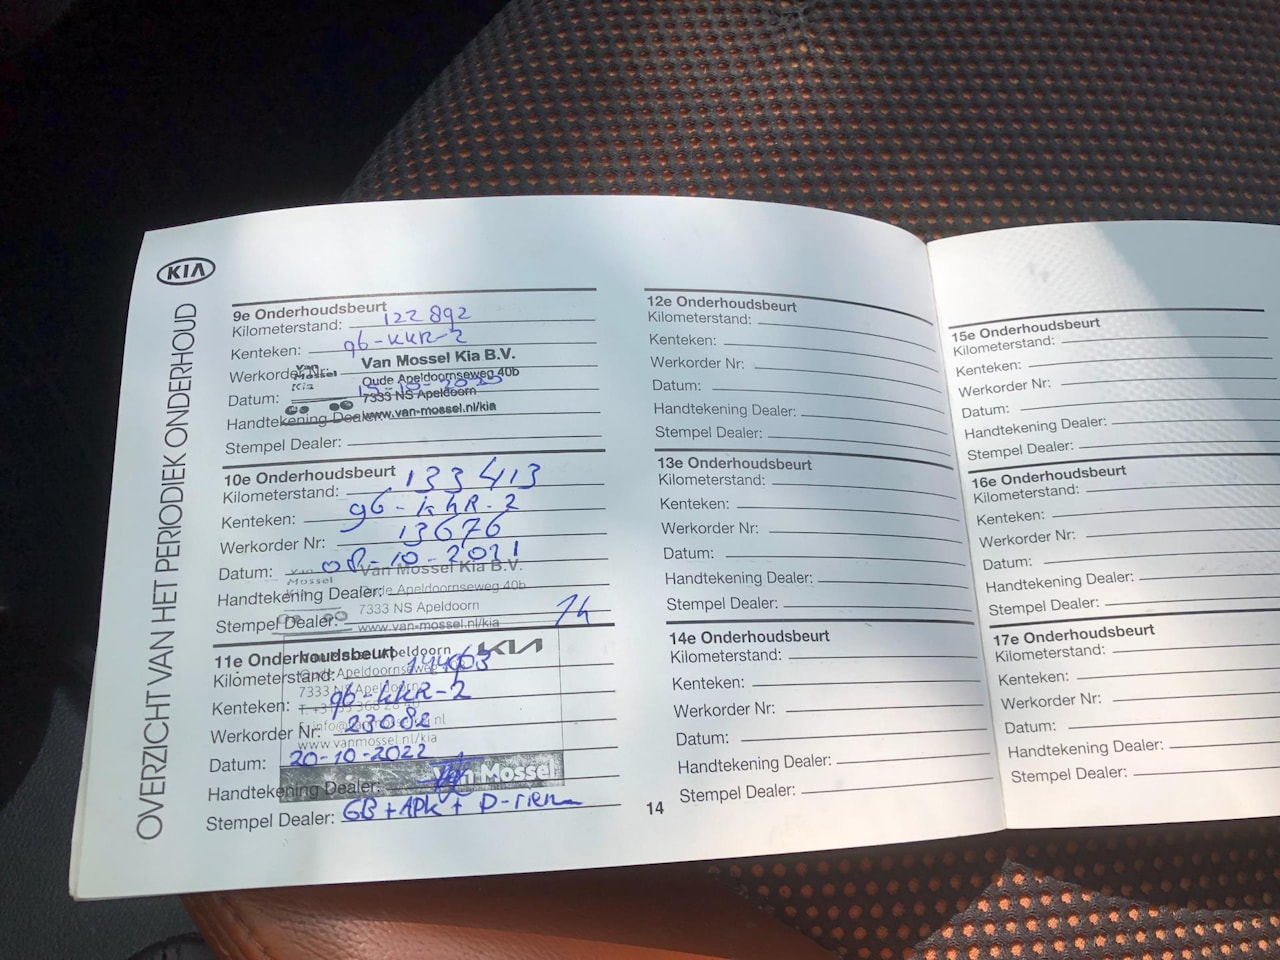 KIA
OVERZICHT VAN HET PERIODIEK ONDERHOUD
9e Onderhoudsbeurt
Kilometerstand: 122892
Kenteken: 96-KKR-2
Werkorder Nr:
Van Mossel Kia
Van Mossel Kia B.V.
Oude Apeldoornseweg 40b
Datum:
7333 NS Apeldoorn
Handtekening Dealer:
www.van-mossel.nl/kia
Stempel Dealer:
10e Onderhoudsbeurt
Kilometerstand: 133413
Kenteken: 96-KKR-2
Werkorder Nr: 13676
Datum: 08-10-2021
Mossel
Van Mossel Kia B.V.
Handtekening Dealer:
Oude Apeldoornseweg 40b
7333 NS Apeldoorn
Stempel Dealer:
www.van-mossel.nl/kia
14
11e Onderhoudsbeurt
Apeldoorn
KIA
Kilometerstand:
Oude Apeldoornseweg
7333 NS Apeldoorn
Kenteken: 96-KKR-2
Werkorder Nr: 23082
www.vanmossel.nl/kia
Datum: 20-10-2022
Van Mossel
Handtekening Dealer:
Stempel Dealer: GB + APK +
12e Onderhoudsbeurt
Kilometerstand:
Kenteken:
Werkorder Nr:
Datum:
Handtekening Dealer:
Stempel Dealer:
13e Onderhoudsbeurt
Kilometerstand:
Kenteken:
Werkorder Nr:
Datum:
Handtekening Dealer:
Stempel Dealer:
14e Onderhoudsbeurt
Kilometerstand:
Kenteken:
Werkorder Nr:
Datum:
Handtekening Dealer:
Stempel Dealer:
14
15e Onderhoudsbeurt
Kilometerstand:
Kenteken:
Werkorder Nr:
Datum:
Handtekening Dealer:
Stempel Dealer:
16e Onderhoudsbeurt
Kilometerstand:
Kenteken:
Werkorder Nr:
Datum:
Handtekening Dealer:
Stempel Dealer:
17e Onderhoudsbeurt
Kilometerstand:
Kenteken:
Werkorder Nr:
Datum:
Handtekening Dealer:
Stempel Dealer: